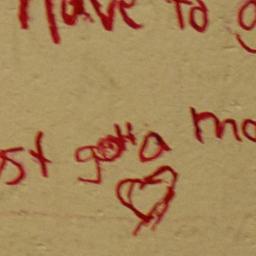 Have to g
st gotta mo